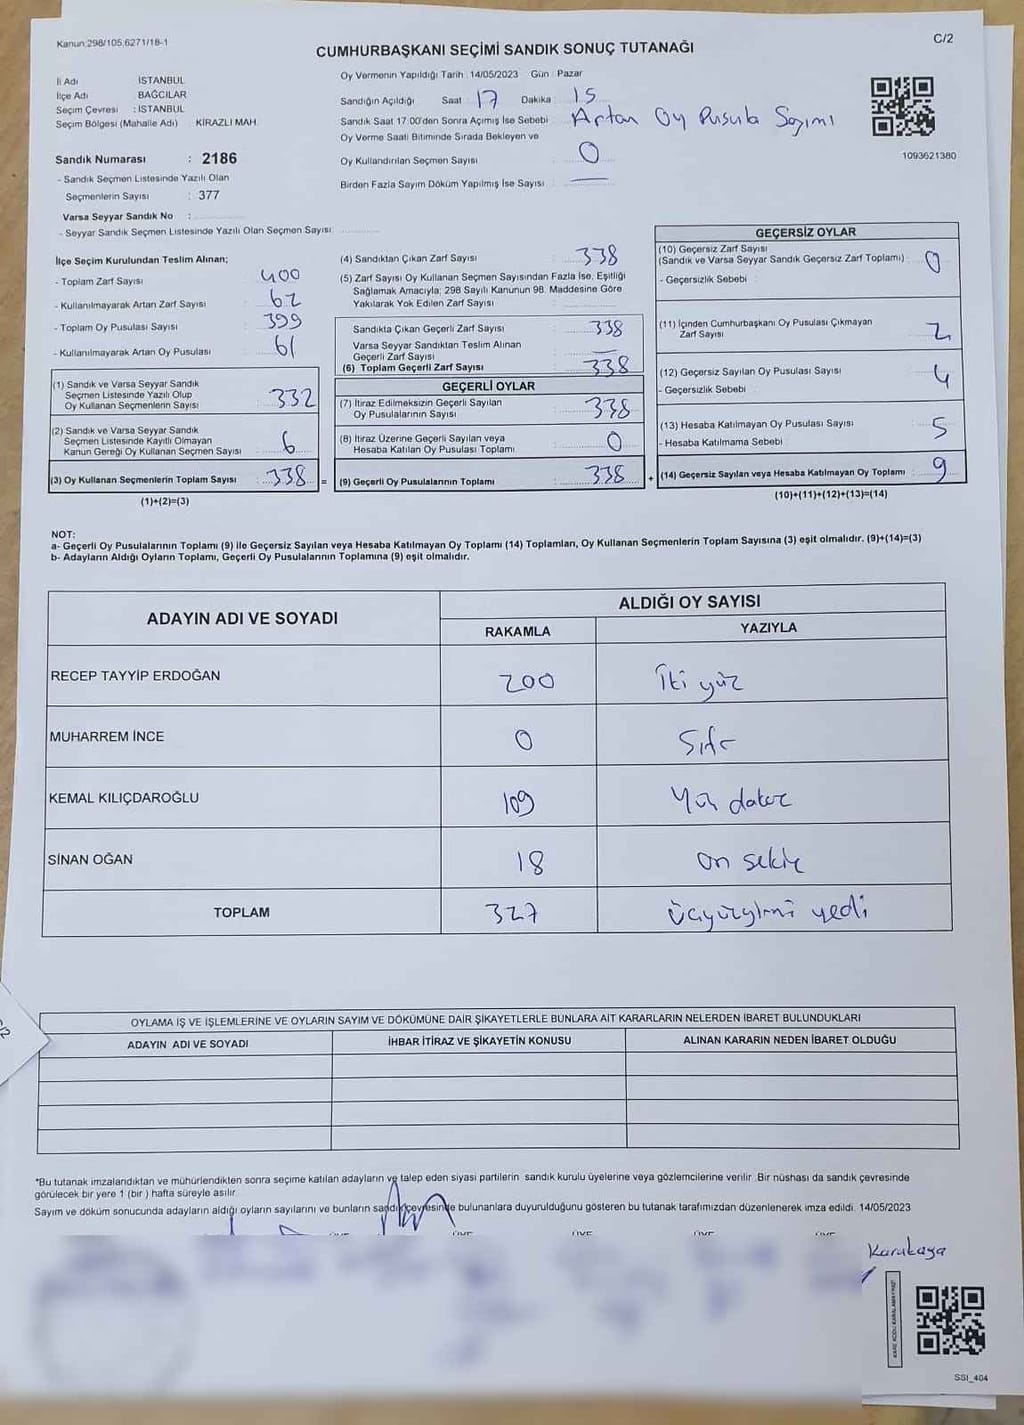 Kanun:298/105,6271/18-1
C/2
CUMHURBAŞKANI SEÇİMİ SANDIK SONUÇ TUTANAĞI
İl Adı : İSTANBUL
İlçe Adı : BAĞCILAR
Seçim Çevresi : İSTANBUL
Seçim Bölgesi (Mahalle Adı) : KİRAZLI MAH.
Sandık Numarası : 2186
- Sandık Seçmen Listesinde Yazılı Olan
Seçmenlerin Sayısı : 377
Varsa Seyyar Sandık No :
- Seyyar Sandık Seçmen Listesinde Yazılı Olan Seçmen Sayısı:
Oy Vermenin Yapıldığı Tarih : 14/05/2023 Gün : Pazar
Sandığın Açıldığı Saat : 17 Dakika : 15
Sandık Saat 17.00'den Sonra Açımış İse Sebebi : Artan Oy Pusula Sayımı
Oy Verme Saati Bitiminde Sırada Bekleyen ve
Oy Kullandırılan Seçmen Sayısı : 0
Birden Fazla Sayım Döküm Yapılmış İse Sayısı :
1093621380
İlçe Seçim Kurulundan Teslim Alınan;
- Toplam Zarf Sayısı : 400
- Kullanılmayarak Artan Zarf Sayısı : 62
- Toplam Oy Pusulası Sayısı : 399
- Kullanılmayarak Artan Oy Pusulası : 61
(1) Sandık ve Varsa Seyyar Sandık
Seçmen Listesinde Yazılı Olup
Oy Kullanan Seçmenlerin Sayısı : 332
(2) Sandık ve Varsa Seyyar Sandık
Seçmen Listesinde Kayıtlı Olmayan
Kanun Gereği Oy Kullanan Seçmen Sayısı : 6
(3) Oy Kullanan Seçmenlerin Toplam Sayısı : 338 =
(1)+(2)=(3)
(4) Sandıktan Çıkan Zarf Sayısı : 338
(5) Zarf Sayısı Oy Kullanan Seçmen Sayısından Fazla İse, Eşitliği
Sağlamak Amacıyla; 298 Sayılı Kanunun 98. Maddesine Göre
Yakılarak Yok Edilen Zarf Sayısı :
Sandıkta Çıkan Geçerli Zarf Sayısı : 338
Varsa Seyyar Sandıktan Teslim Alınan
Geçerli Zarf Sayısı :
(6) Toplam Geçerli Zarf Sayısı : 338
GEÇERLİ OYLAR
(7) İtiraz Edilmeksizin Geçerli Sayılan
Oy Pusulalarının Sayısı : 338
(8) İtiraz Üzerine Geçerli Sayılan veya
Hesaba Katılan Oy Pusulası Toplamı : 0
(9) Geçerli Oy Pusulalarının Toplamı : 338 +
GEÇERSİZ OYLAR
(10) Geçersiz Zarf Sayısı
(Sandık ve Varsa Seyyar Sandık Geçersiz Zarf Toplamı) : 0
- Geçersizlik Sebebi :
(11) İçinden Cumhurbaşkanı Oy Pusulası Çıkmayan
Zarf Sayısı : 2
(12) Geçersiz Sayılan Oy Pusulası Sayısı : 4
- Geçersizlik Sebebi :
(13) Hesaba Katılmayan Oy Pusulası Sayısı : 5
- Hesaba Katılmama Sebebi :
(14) Geçersiz Sayılan veya Hesaba Katılmayan Oy Toplamı : 9
(10)+(11)+(12)+(13)=(14)
NOT:
a- Geçerli Oy Pusulalarının Toplamı (9) ile Geçersiz Sayılan veya Hesaba Katılmayan Oy Toplamı (14) Toplamları, Oy Kullanan Seçmenlerin Toplam Sayısına (3) eşit olmalıdır. (9)+(14)=(3)
b- Adayların Aldığı Oyların Toplamı, Geçerli Oy Pusulalarının Toplamına (9) eşit olmalıdır.
ADAYIN ADI VE SOYADI
ALDIĞI OY SAYISI
RAKAMLA YAZIYLA
RECEP TAYYİP ERDOĞAN 200 İki yüz
MUHARREM İNCE 0 Sıfır
KEMAL KILIÇDAROĞLU 109 Yüz dokuz
SİNAN OĞAN 18 on sekiz
TOPLAM 327 üçyüzyirmi yedi
OYLAMA İŞ VE İŞLEMLERİNE VE OYLARIN SAYIM VE DÖKÜMÜNE DAİR ŞİKAYETLERLE BUNLARA AİT KARARLARIN NELERDEN İBARET BULUNDUKLARI
ADAYIN ADI VE SOYADI İHBAR İTİRAZ VE ŞİKAYETİN KONUSU ALINAN KARARIN NEDEN İBARET OLDUĞU
*Bu tutanak imzalandıktan ve mühürlendikten sonra seçime katılan adayların ve talep eden siyasi partilerin sandık kurulu üyelerine veya gözlemcilerine verilir. Bir nüshası da sandık çevresinde
görülecek bir yere 1 (bir) hafta süreyle asılır.
Sayım ve döküm sonucunda adayların aldığı oyların sayılarını ve bunların sandık çevresinde bulunanlara duyurulduğunu gösteren bu tutanak tarafımızdan düzenlenerek imza edildi. 14/05/2023
ÜYE ÜYE ÜYE ÜYE ÜYE
Karakaya
KARE KODU KARALAMAYINIZ!
SSI_404
C/2